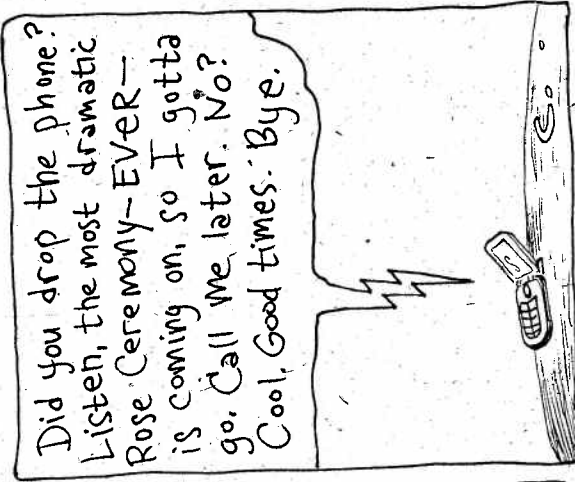 Did you drop the phone?
Listen, the most dramatic
Rose Ceremony-EVER-
is coming on, so I gotta
go. Call me later. No?
Cool. Good times. Bye.